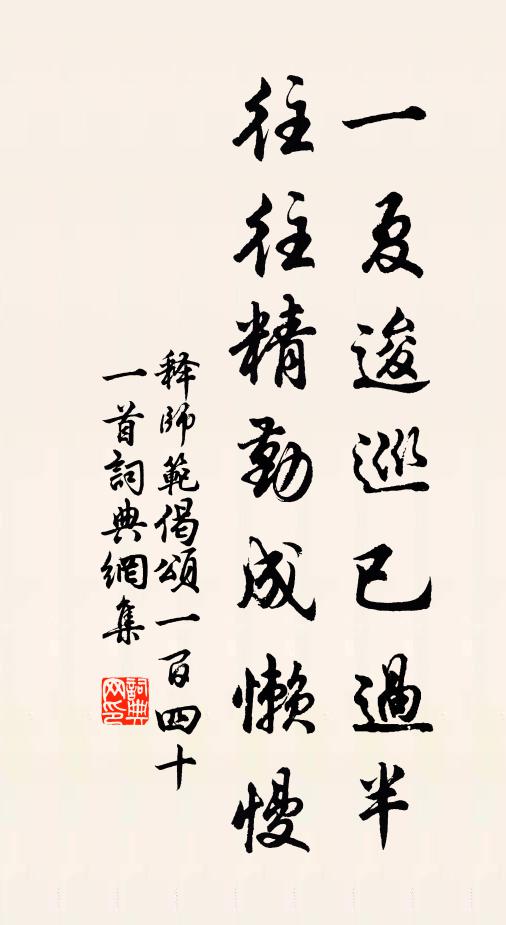 一夏逡巡已過半
往往精勤成懶慢
释師範偈頌一百四十
一首詞典網集
詞典
网印